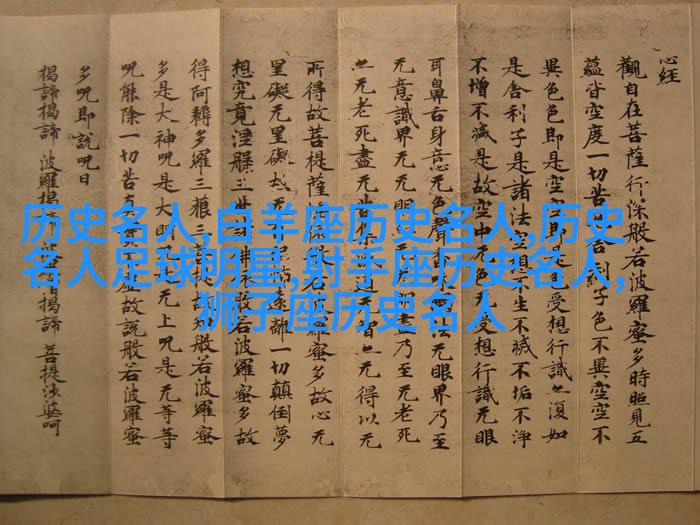 历史名人,白羊座历史名人,历史
名人足球明星,射手座历史名人,
狮子座历史名人
心经
觀自在菩薩行深般若波羅蜜多時照見五
蘊皆空度一切苦 利子色不異空空不
異色色即是空空 是色受想行識亦復如
是舍利子是諸法空相不生不滅不垢不淨
不增不減是故空中无色无受想行識无眼
耳鼻舌身意无色聲香 法无眼界乃至
无意識界无无明 盡乃至无老死
亦无老死盡无苦集 道无智亦无得以无
所得故菩提薩 若波羅蜜多故心无
罣礙无罣礙故无 遠離一切顛倒夢
想究竟涅槃三世 佛依般若波羅蜜多故
得阿耨多羅三藐三 故 般若波羅蜜
多是大神咒是大明 无上咒是无等等
咒能除一切苦真 虛故說般若波羅蜜
多咒即說咒曰
揭諦揭諦 波羅揭諦 揭諦 菩提沙婆呵